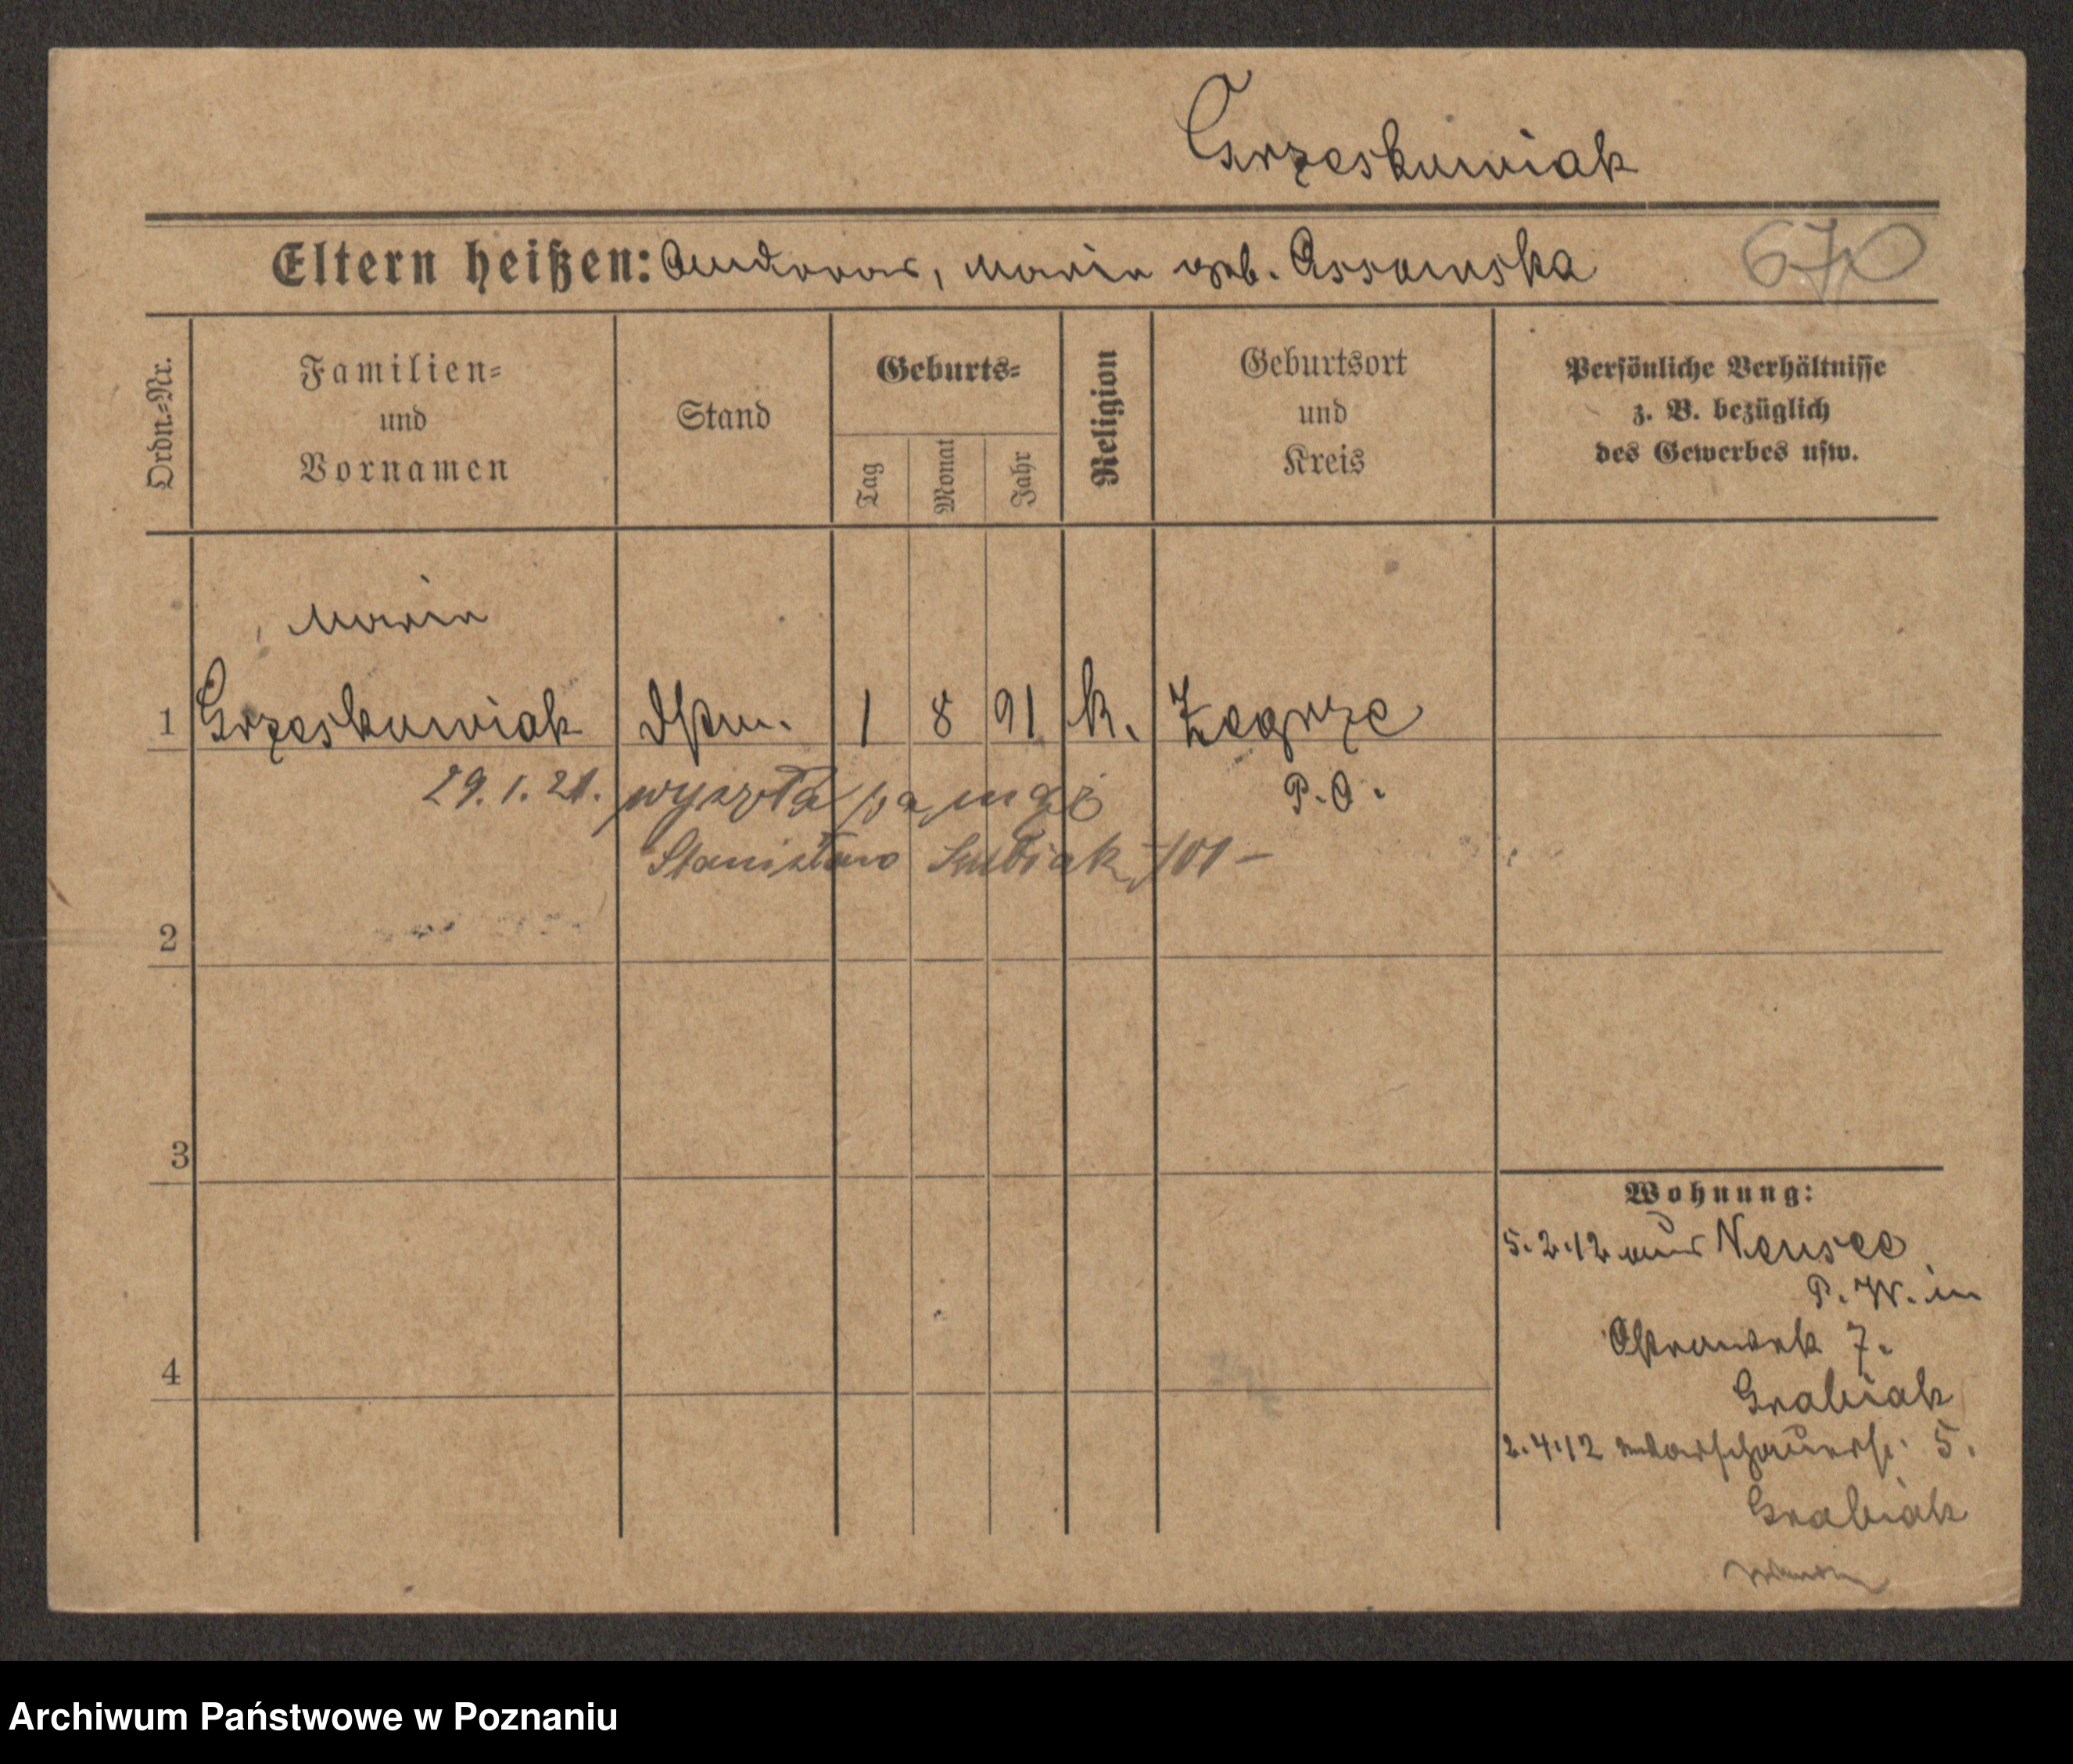 Grzeskowiak
Eltern heißen: Andreas, Maria geb. Assomska
670
Ordn.-Nr.
Familien-
und
Vornamen
Stand
Geburts-
Tag
Monat
Jahr
Religion
Geburtsort
und
Kreis
Persönliche Verhältnisse
z. B. bezüglich
des Gewerbes usw.
Maria
1 Grzeskowiak 1 8 91 k. Zegrze
P.O.
29.1.21. wyszła za mąż
Stanisław 101 -
2
3
4
Wohnung:
5.2.12 aus Neusee
P. W. in
Ostrowek 7.
Grabiak
2.4.12 Warschauerst. 5.
Grabiak